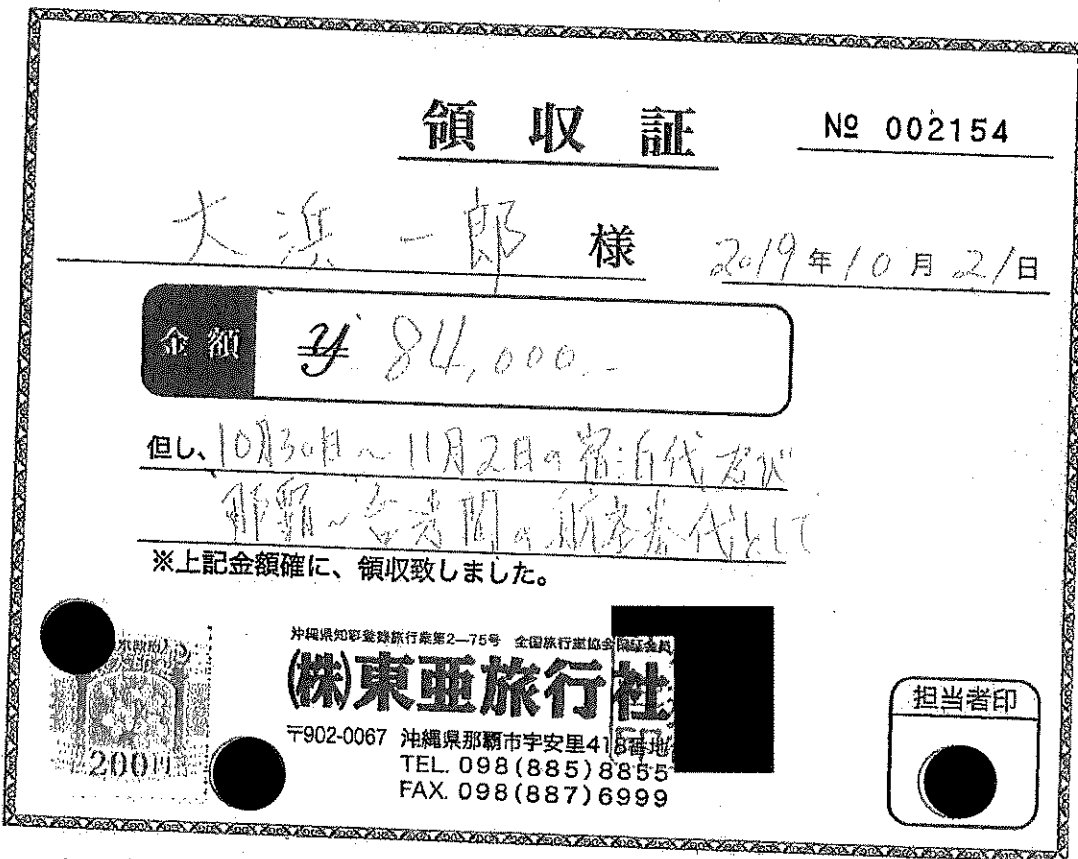 領収証
№ 002154
大浜一郎 様
2019年10月21日
金額 ¥84,000.-
但し、10月30日~11月2日の宿泊代及び
那覇~台北間の航空券代として
※上記金額確に、領収致しました。
沖縄県知事登録旅行業第2―75号 全国旅行業協会保証会員
(株)東亜旅行社
〒902-0067 沖縄県那覇市字安里418番地
TEL. 098(885)8855
FAX. 098(887)6999
200円
担当者印